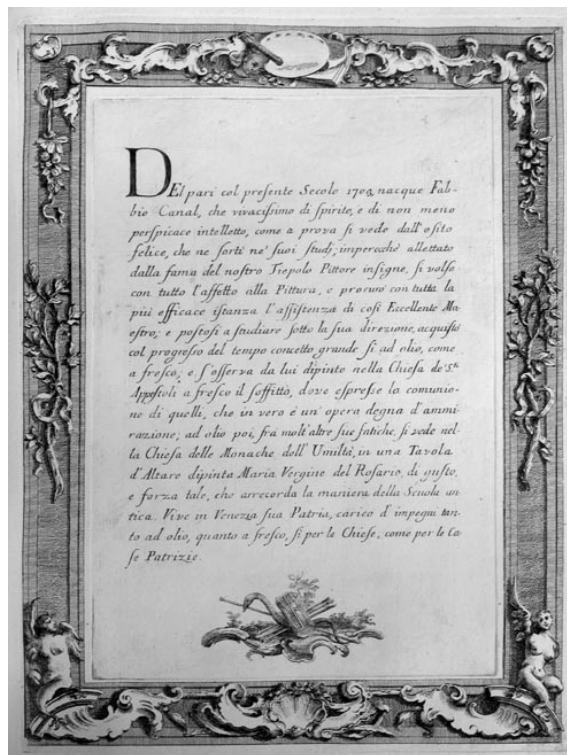 DEl pari col presente Secolo 1703 nacque Fab-
bio Canal, che vivacissimo di spirite, e di non meno
perspicace intelletto, come a prova si vede dall'esito
felice, che ne sortì ne' suoi studj; imperochè allettato
dalla fama del nostro Tiepolo Pittore insigne, si volse
con tutto l'affetto alla Pittura, e procurò con tutta la
più efficace istanza l'assistenza di così Eccellente Ma
estro; e postosi a studiare sotto la sua direzione, acquistò
col progresso del tempo concetto grande sì ad olio, come
a fresco; e s'osserva da lui dipinto nella Chiesa de' Sti
Appostoli a fresco il soffitto, dove espresse la comunio-
ne di quelli, che in vero è un' opera degna d'ammi-
razione; ad olio poi, frà molt'altre sue fatiche, si vede nel-
la Chiesa delle Monache dell' Umiltà, in una Tavola
d'Altare dipinta Maria Vergine del Rosario, di gusto,
e forza tale, che arrecorda la maniera della Scuola an
tica. Vive in Venezia sua Patria, carico d'impegni tan-
to ad olio, quanto a fresco, sì per le Chiese, come per le Ca
se Patrizie.